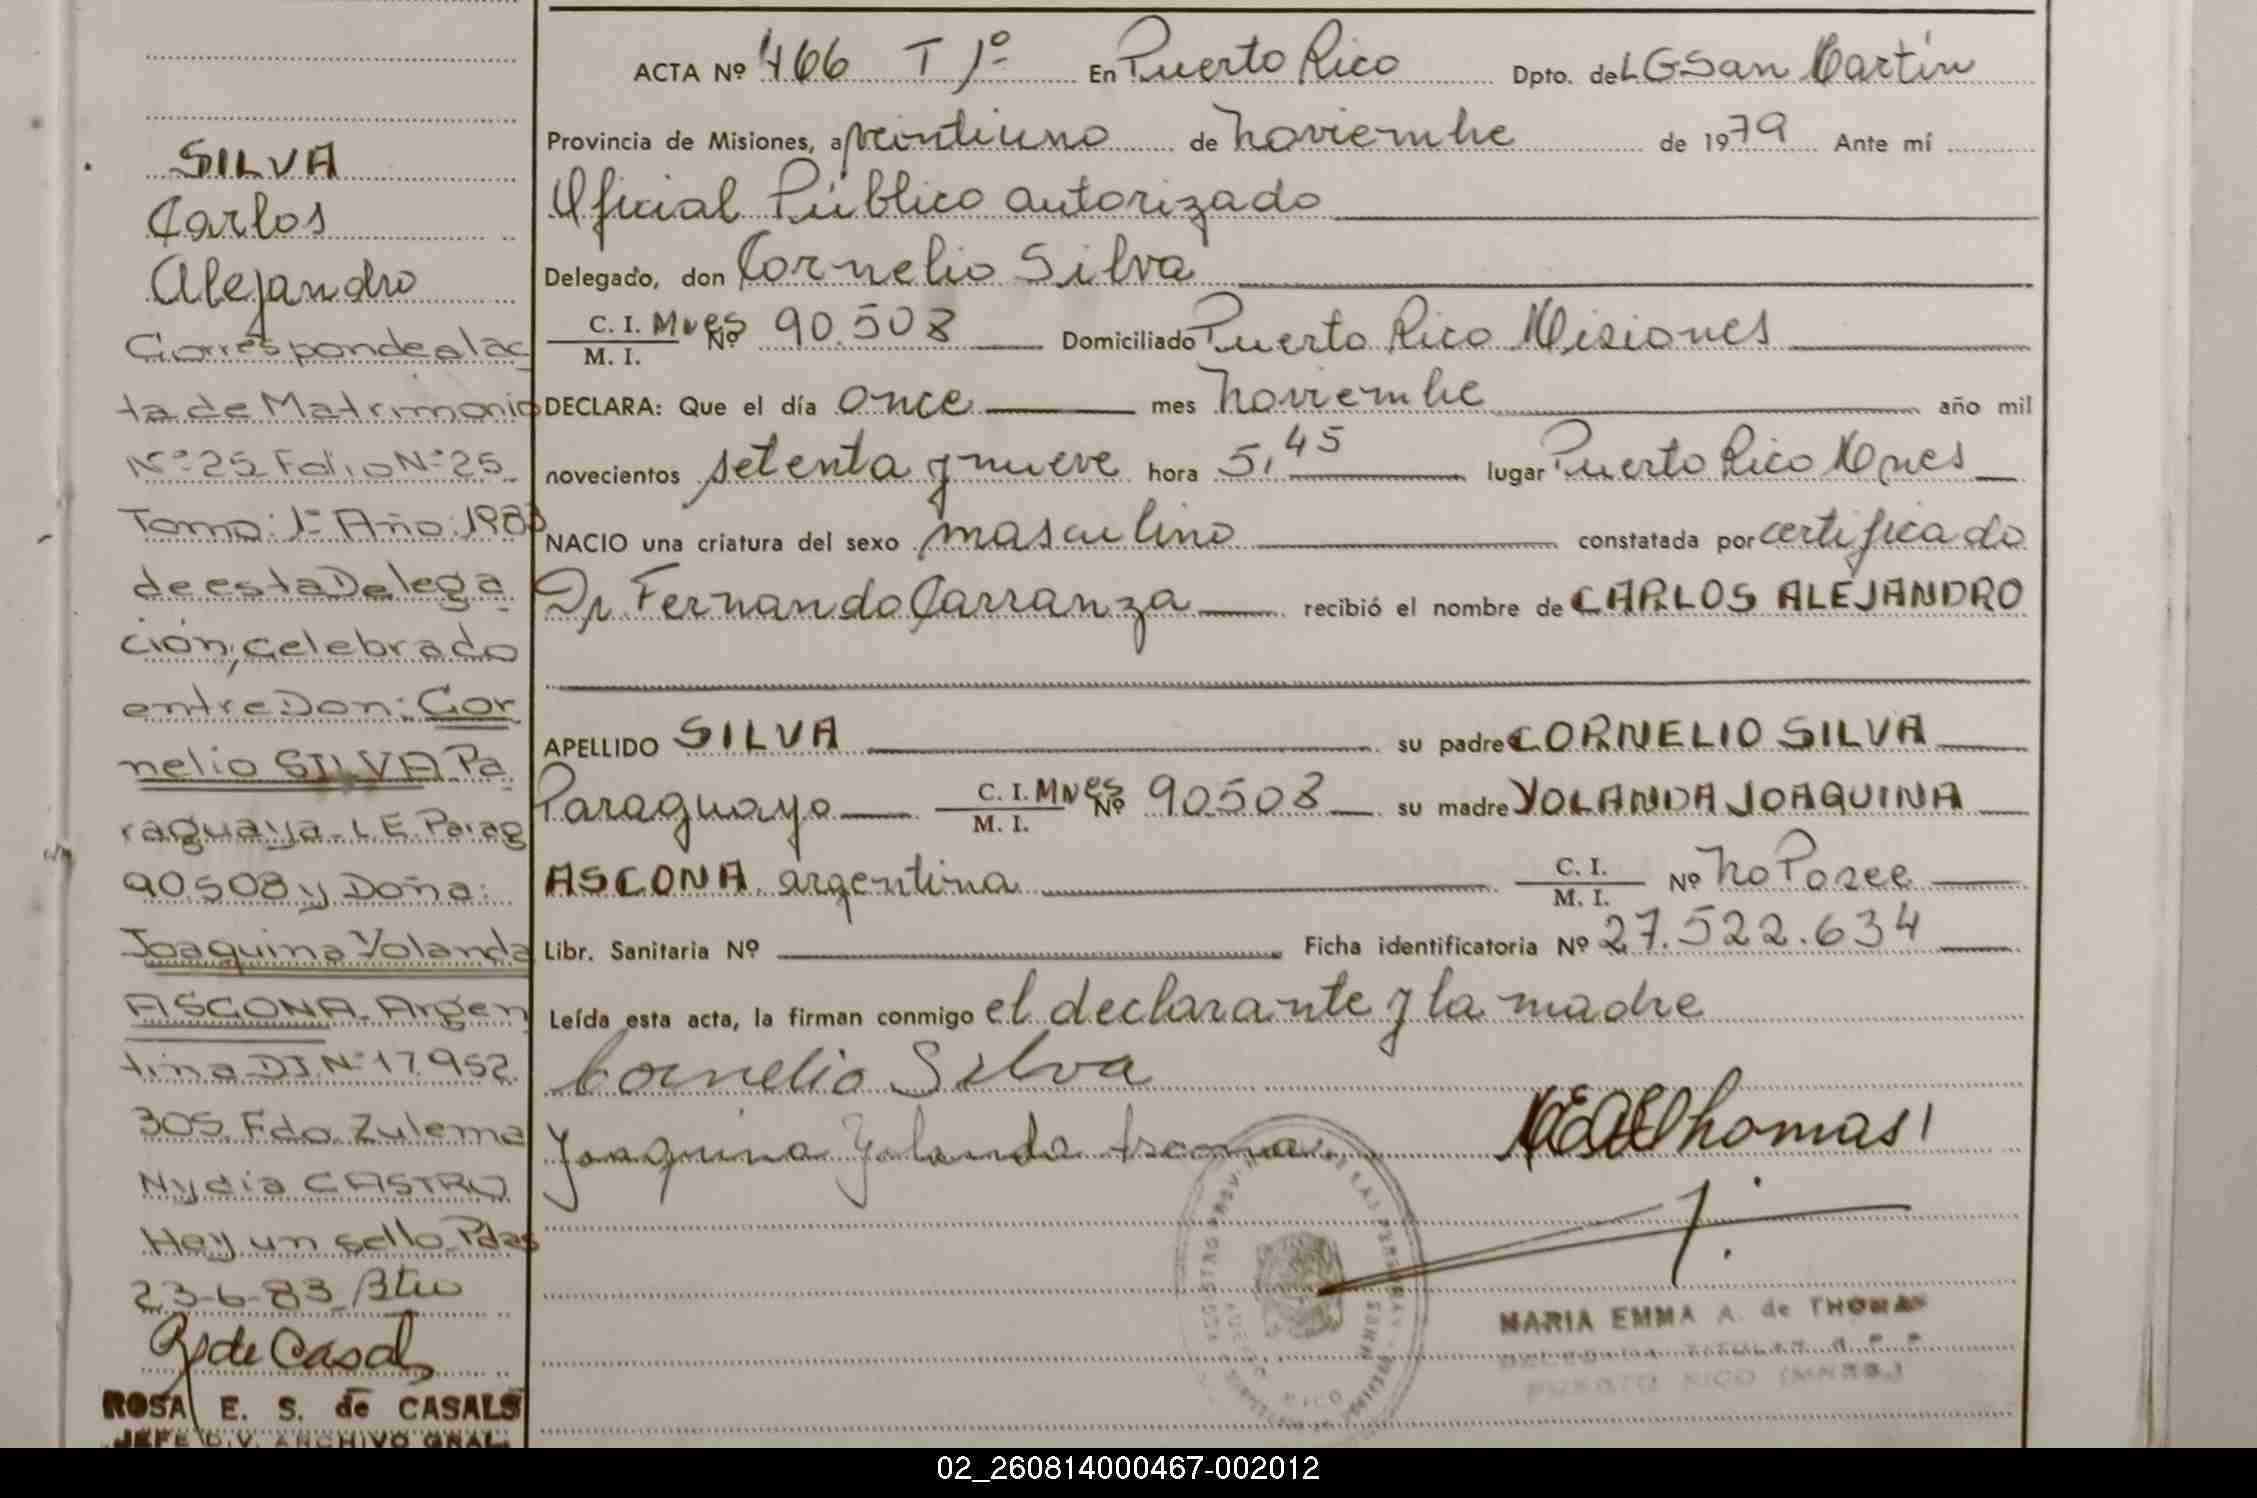 SILVA
Carlos
Alejandro
Corresponde al ac
ta de Matrimonio
Nº 25 Folio Nº 25
Tomo: 1º Año: 1983
de esta Delega
ción, celebrado
entre Don: Cor
nelio SILVA Pa
raguaya - I.E. Parag
90.508 y Doña:
Joaquina Yolanda
ASCONA - Argen
tina DI Nº 17.952.
305 Fdo. Zulema
Nydia CASTRO
Hay un sello Pdas
23-6-83
R de Casals
ROSA E. S. de CASALS
JEFE DIV. ARCHIVO GRAL.
ACTA Nº 466 T 1º En Puerto Rico Dpto. de L G San Martín
Provincia de Misiones, a veintiuno de noviembre de 1979 Ante mí
Oficial Público autorizado
Delegado, don Cornelio Silva
C. I. Mnes Nº 90.508 Domiciliado Puerto Rico Misiones
M. I.
DECLARA: Que el día once mes noviembre año mil
novecientos setenta y nueve hora 5,45 lugar Puerto Rico Mnes
NACIO una criatura del sexo masculino constatada por certificado
Dr. Fernando Carranza recibió el nombre de CARLOS ALEJANDRO
APELLIDO SILVA su padre CORNELIO SILVA
Paraguayo C. I. Mnes Nº 90.508 su madre YOLANDA JOAQUINA
M. I.
ASCONA argentina C. I. Nº No Posee
M. I.
Libr. Sanitaria Nº Ficha identificatoria Nº 27.522.634
Leída esta acta, la firman conmigo el declarante y la madre
Cornelio Silva
Joaquina Yolanda Ascona
Thomas
MARIA EMMA A. de THOMAS
DELEGADA TITULAR
PUERTO RICO (MNES.)
02_260814000467-002012